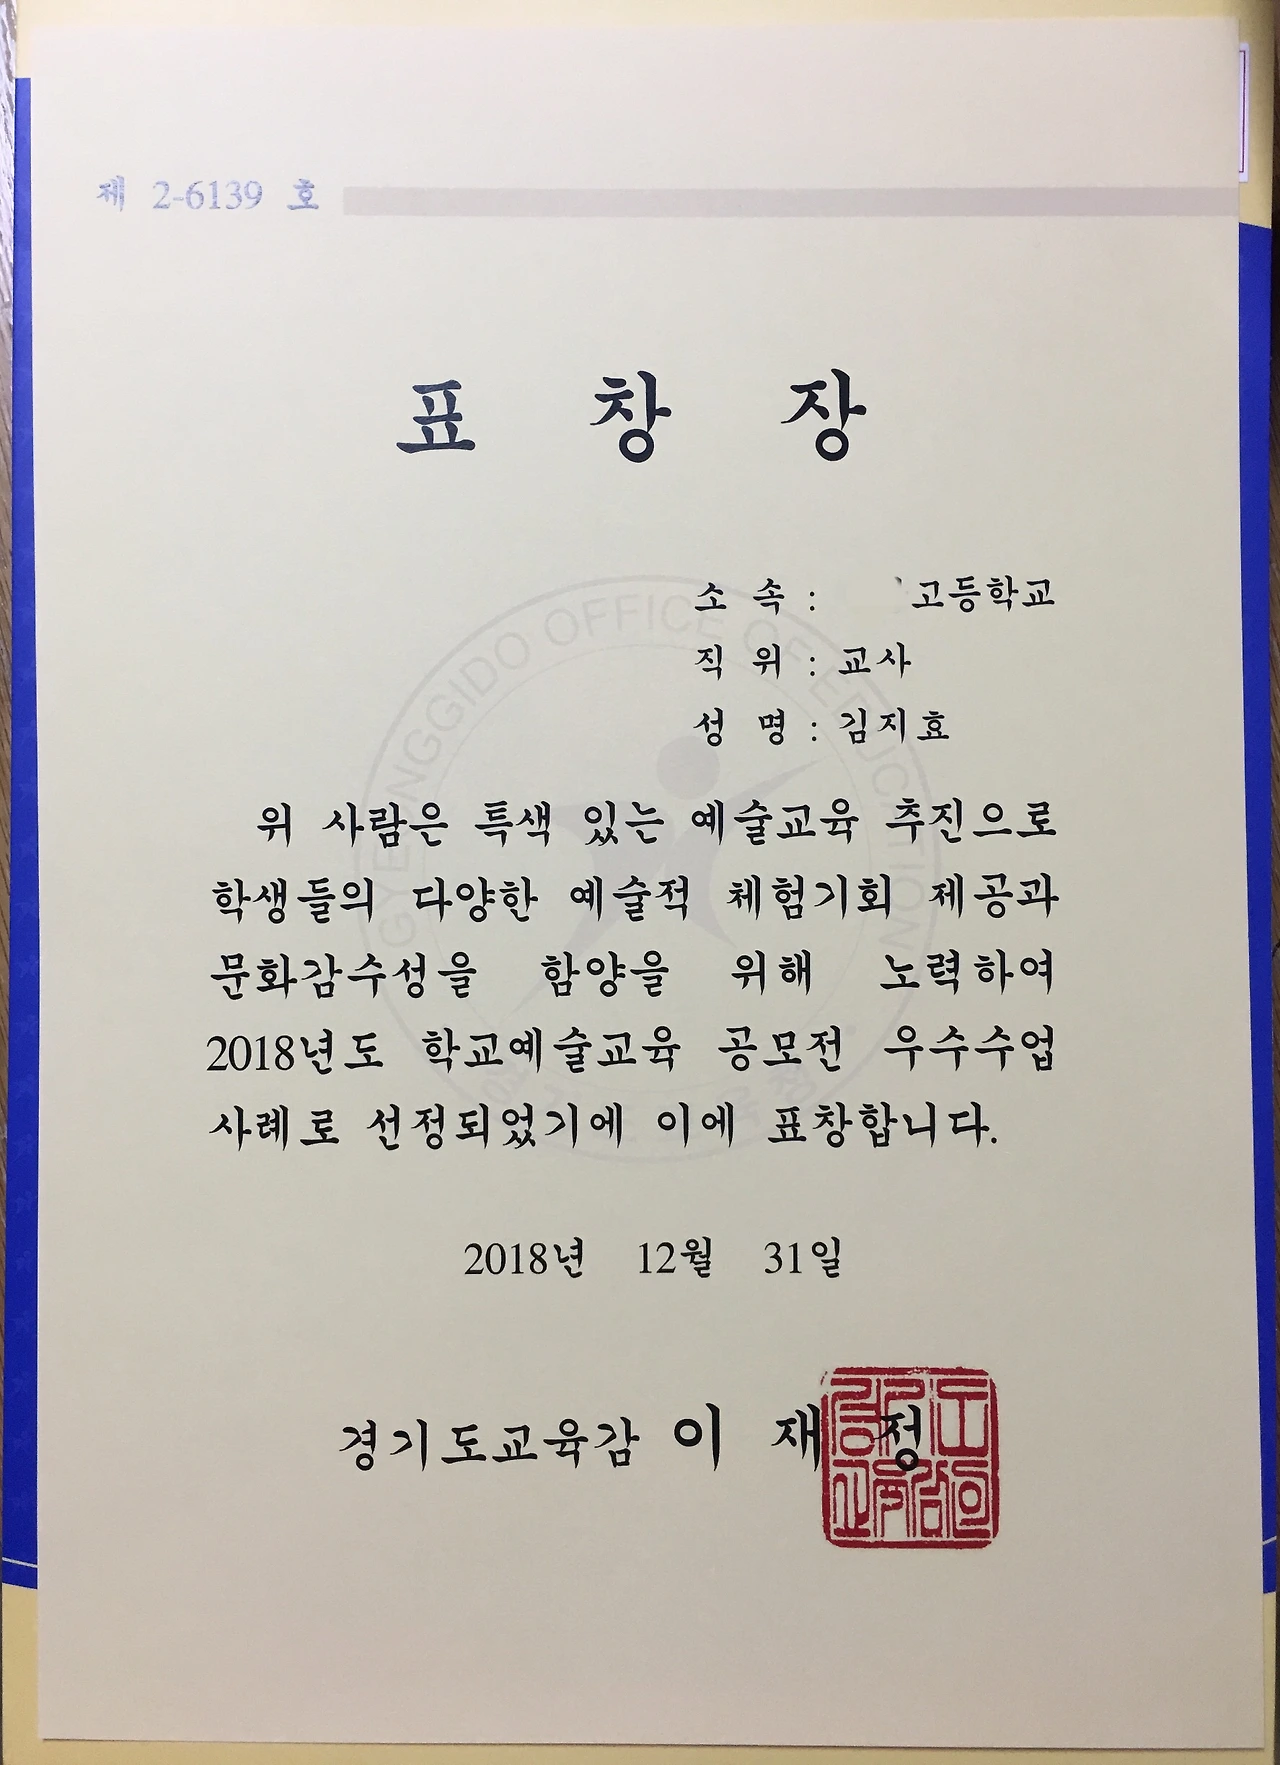 제 2-6139 호
표 창 장
소 속 : 고등학교
직 위 : 교사
성 명 : 김지효
위 사람은 특색 있는 예술교육 추진으로
학생들의 다양한 예술적 체험기회 제공과
문화감수성을 함양을 위해 노력하여
2018년도 학교예술교육 공모전 우수수업
사례로 선정되었기에 이에 표창합니다.
2018년 12월 31일
경기도교육감 이 재 정
GYEONGGIDO OFFICE OF EDUCATION